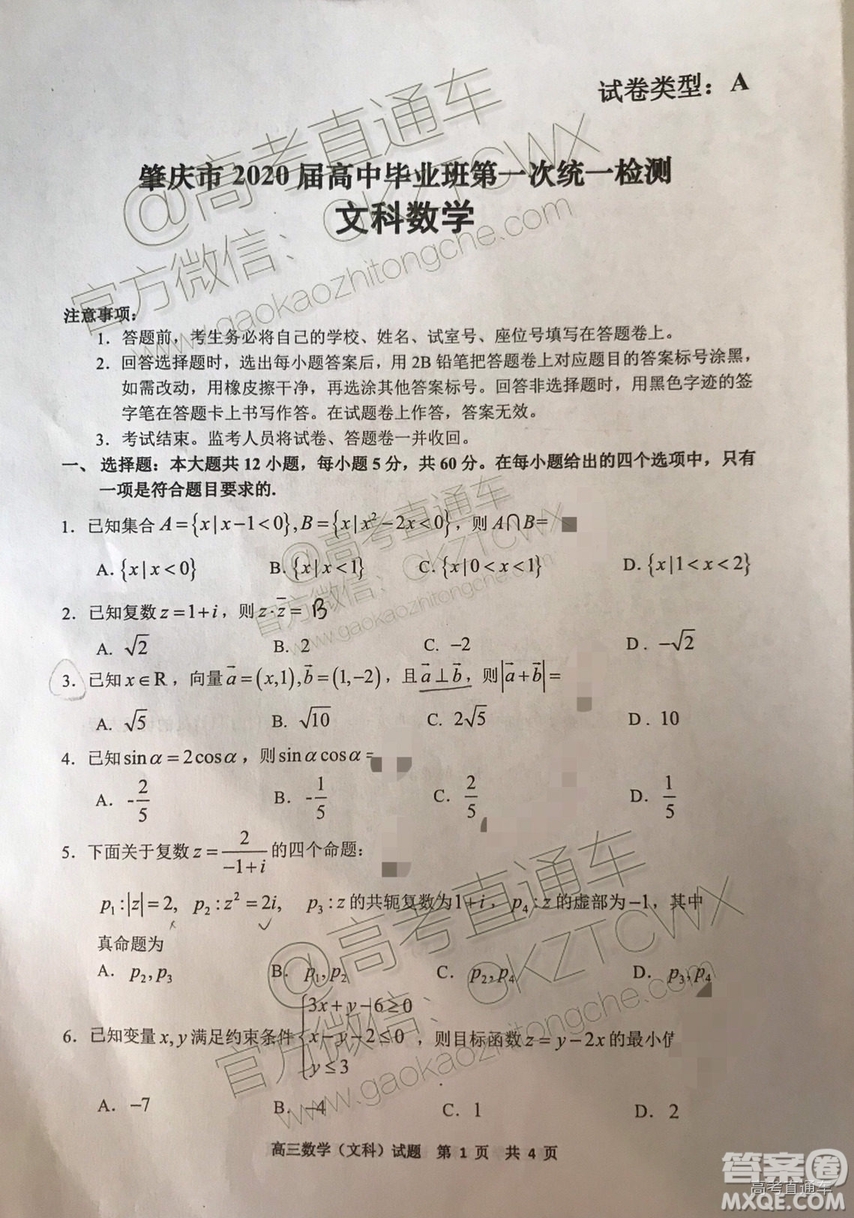 试卷类型：A
肇庆市 2020 届高中毕业班第一次统一检测
文科数学
注意事项：
1．答题前，考生务必将自己的学校、姓名、试室号、座位号填写在答题卷上。
2．回答选择题时，选出每小题答案后，用 2B 铅笔把答题卷上对应题目的答案标号涂黑，
如需改动，用橡皮擦干净，再选涂其他答案标号。回答非选择题时，用黑色字迹的签
字笔在答题卡上书写作答。在试题卷上作答，答案无效。
3．考试结束。监考人员将试卷、答题卷一并收回。
一、选择题：本大题共 12 小题，每小题 5 分，共 60 分。在每小题给出的四个选项中，只有
一项是符合题目要求的.
1．已知集合 A={x|x−1<0},B={x|x²−2x<0}，则 A∩B=
A.{x|x<0} B.{x|x<1} C.{x|0<x<1} D.{x|1<x<2}
2．已知复数 z=1+i，则 z·z̄= B
A．√2 B．2 C．−2 D．−√2
3．已知 x∈R，向量 a⃗=(x,1),b⃗=(1,−2)，且 a⃗⊥b⃗，则|a⃗+b⃗|=
A．√5 B．√10 C．2√5 D．10
4．已知 sinα=2cosα，则 sinαcosα=
A．-2/5 B．-1/5 C．2/5 D．1/5
5．下面关于复数 z=2/(−1+i) 的四个命题：
p₁:|z|=2, p₂:z²=2i, p₃:z 的共轭复数为 1+i，p₄:z 的虚部为−1，其中
真命题为
A．p₂,p₃ B．p₁,p₂ C．p₂,p₄ D．p₃,p₄
6．已知变量 x,y 满足约束条件 {3x+y−6≥0 x−y−2≤0 y≤3，则目标函数 z=y−2x 的最小值
A．−7 B．−4 C．1 D．2
高三数学（文科）试题 第 1 页 共 4 页
@高考直通车
官方微信：GKZTCWX
www.gaokaozhitongche.com
@高考直通车
官方微信：GKZTCWX
www.gaokaozhitongche.com
@高考直通车
官方微信：GKZTCWX
www.gaokaozhitongche.com
答案圈
高考直通车
MXQE.COM